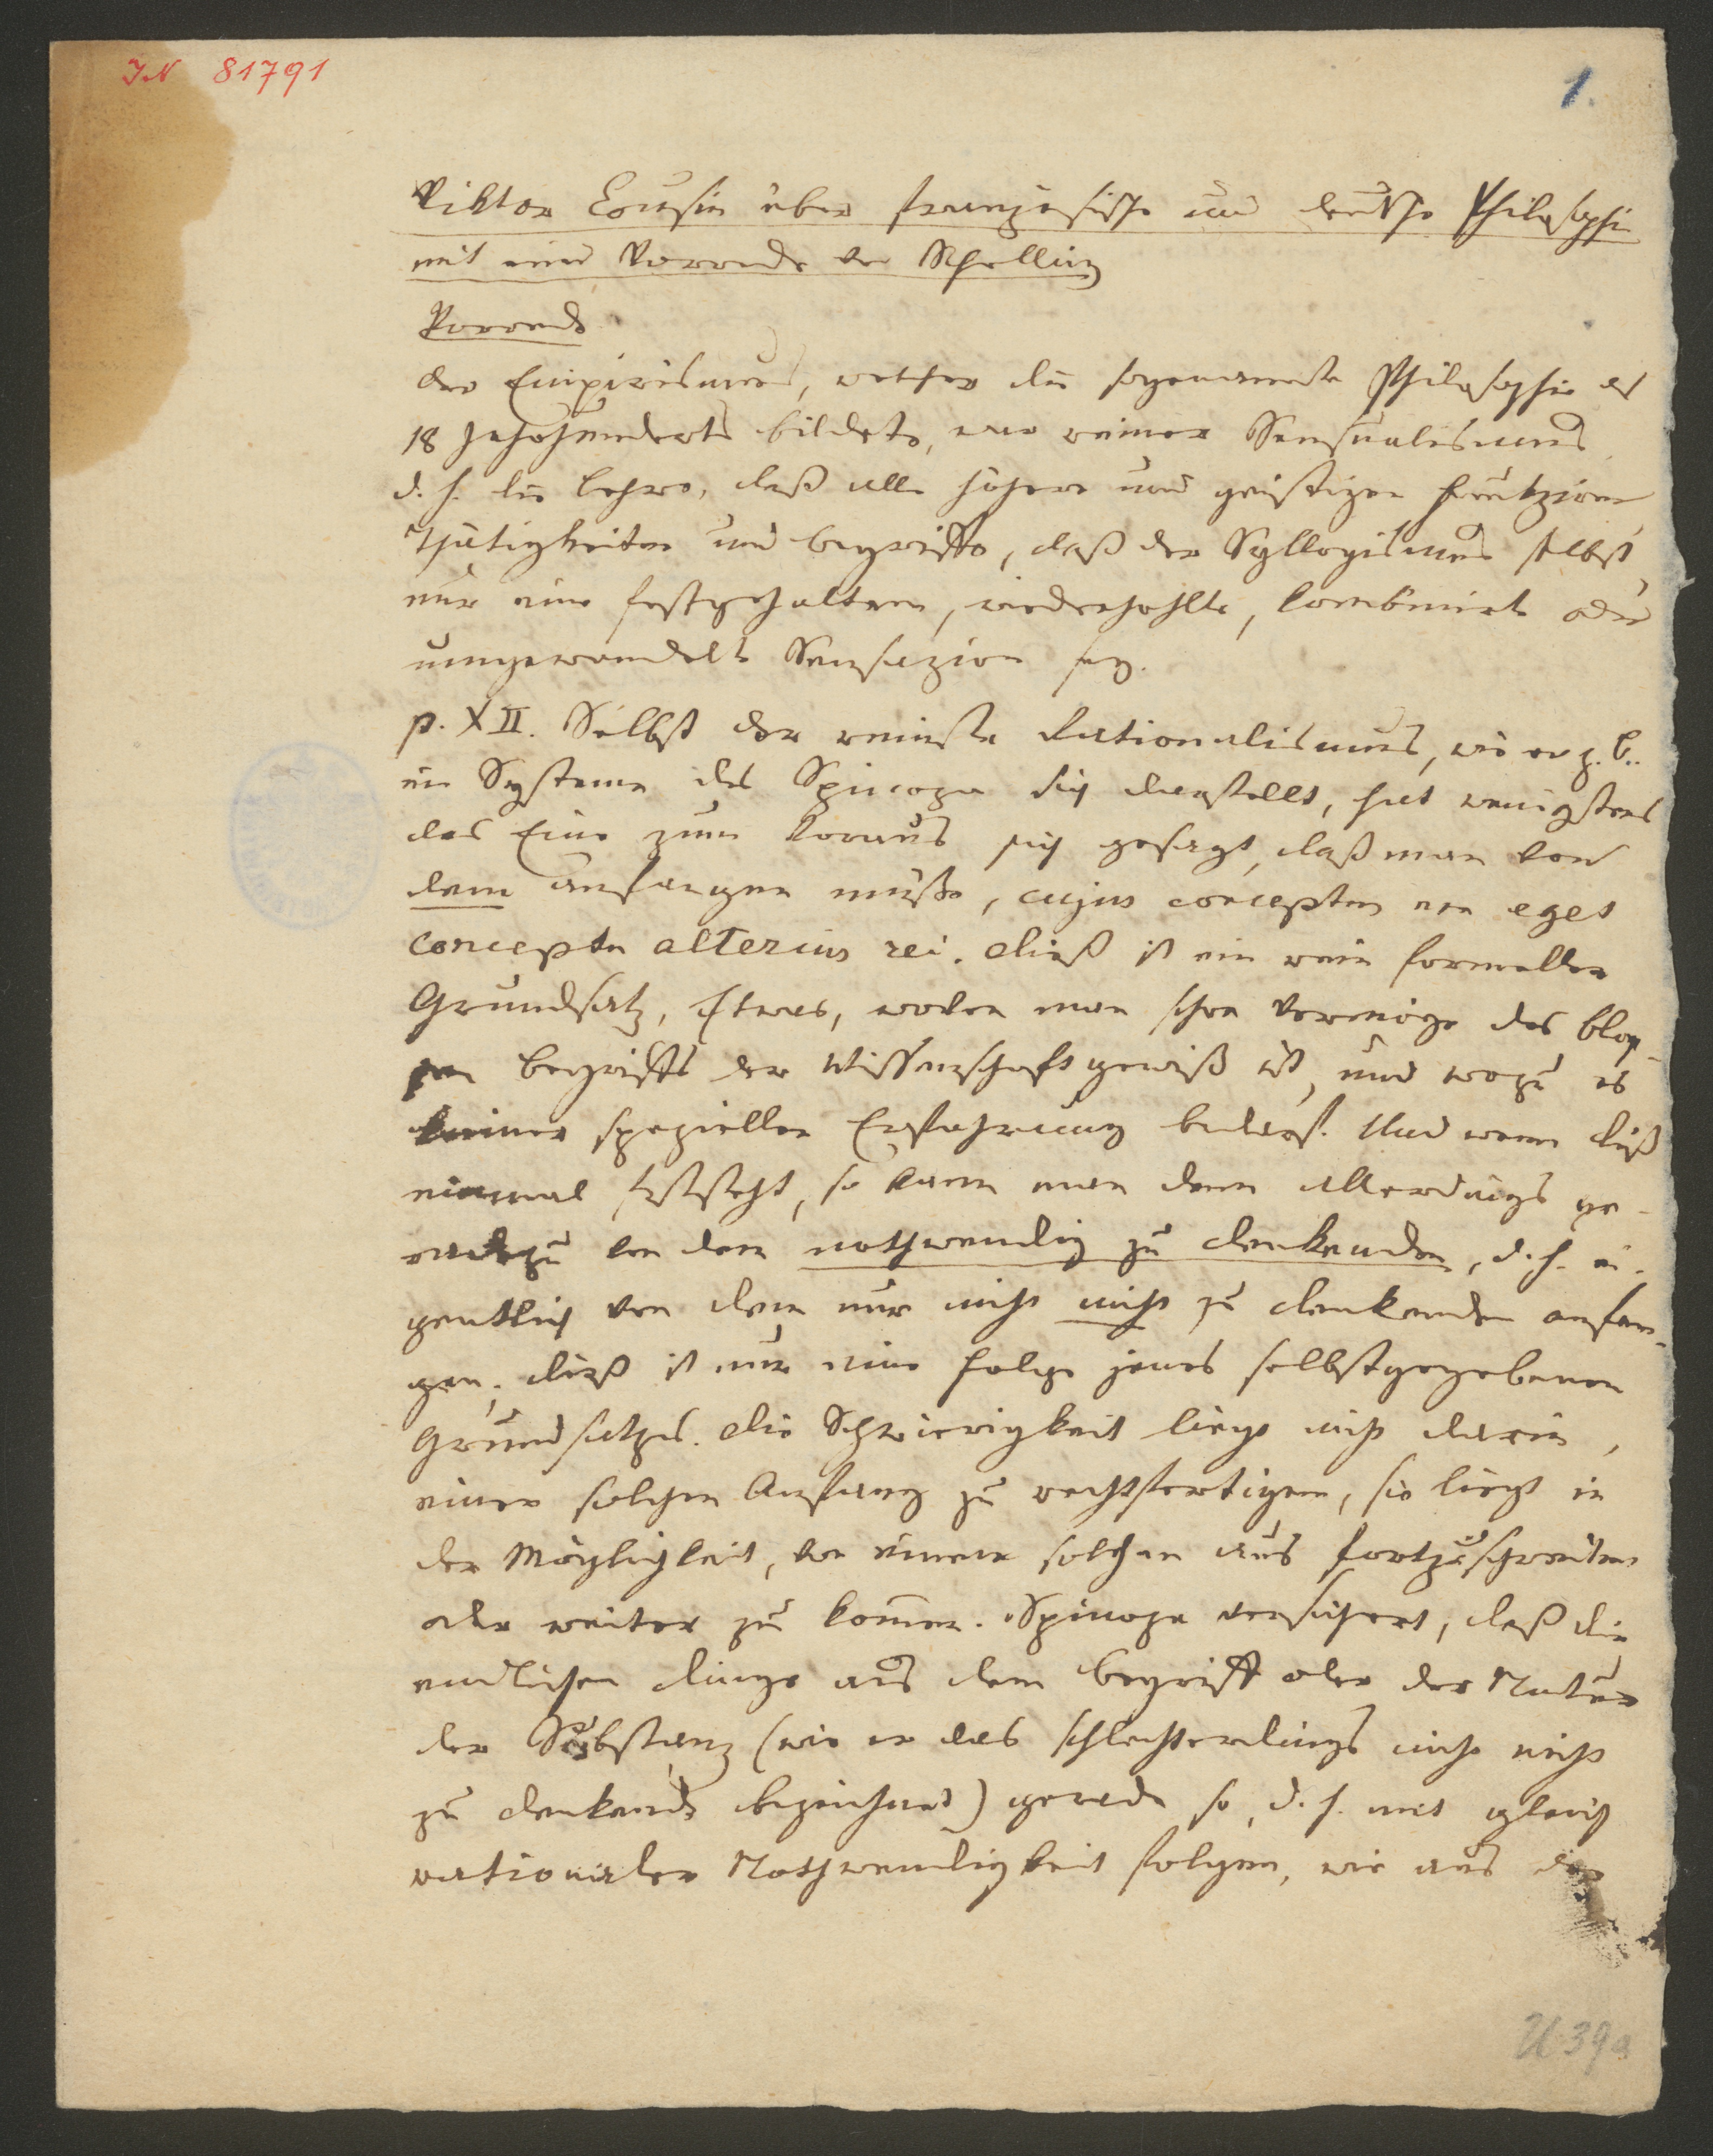 IN 81791
1.
Viktor Cousin über französische und deutsche Philosophie
mit einer Vorrede von Schelling
Vorrede
Der Empirismus, welcher die sogenannte Philosophie des
18 Jahrhunderts bildete, war reiner Sensualismus
d. h. die Lehre, daß alle höhern und geistigen Funkzionen
Thätigkeiten und Begriffe, daß der Syllogismus selbst
nur eine festgehaltene, wiederhohlte, kombinirte oder
umgewandelte Sensazion sey.
p. XII. Selbst der reinste Rationalismus, wie er z. B.
im Systeme des Spinoza sich darstellt, hat wenigstens
das Eine zum Voraus sich gesagt, daß man von
dem anfangen müße, cujus conceptus non eget
conceptu alterius rei. Dieß ist ein rein formeller
Grundsatz, Etwas, wovon man schon vermöge des bloß-
sen Begriffs der Wissenschaft gewiß ist, und wozu es
keiner speziellen Erfahrung bedarf. Und wenn dieß
einmal feststeht, so kann man denn allerdings ge-
radezu von dem nothwendig zu denkenden, d. h. ei-
gentlich von dem nur nicht nicht zu denkenden anfan-
gen; dieß ist nur eine Folge jenes selbstgegebenen
Grundsatzes. Die Schwierigkeit liegt nicht darin,
einen solchen Anfang zu rechtfertigen, sie liegt in
der Möglichkeit, von einem solchen aus fortzuschreiten
oder weiter zu kommen. Spinoza versichert, daß die
endlichen Dinge aus dem Begriff oder der Natur
der Substanz (wie er das schlechterdings nicht nicht
zu denkende bezeichnet) gerade so, d. h. mit gleich
rationaler Nothwendigkeit folgen, wie aus der
U 39a